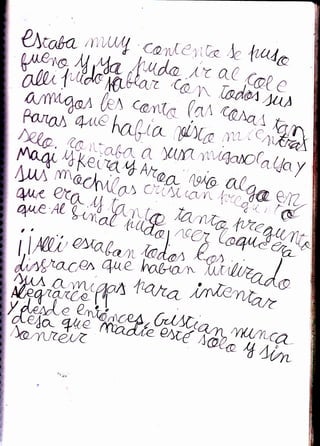 estaba muy contento se puso
bueno y ya pudo ir al cole
alli pudo hablar con todos sus
amigos les conto las cosas tan
Raras que había visto mientras
selo contaba a sus amigas Olaya y
Magi y Keira y Aroa vio algo en
sus mochilas cristian pregunto
que era y tanto tanto pregunto
que Al final pudo ver loque era
¡¡Alli estaban todos los
disfraces que habian utilizado
sus amigas para intentar
Alegrarce!!
y desde entonces, Cristian nunca
deja que nadie esté solo y sin
sonreir